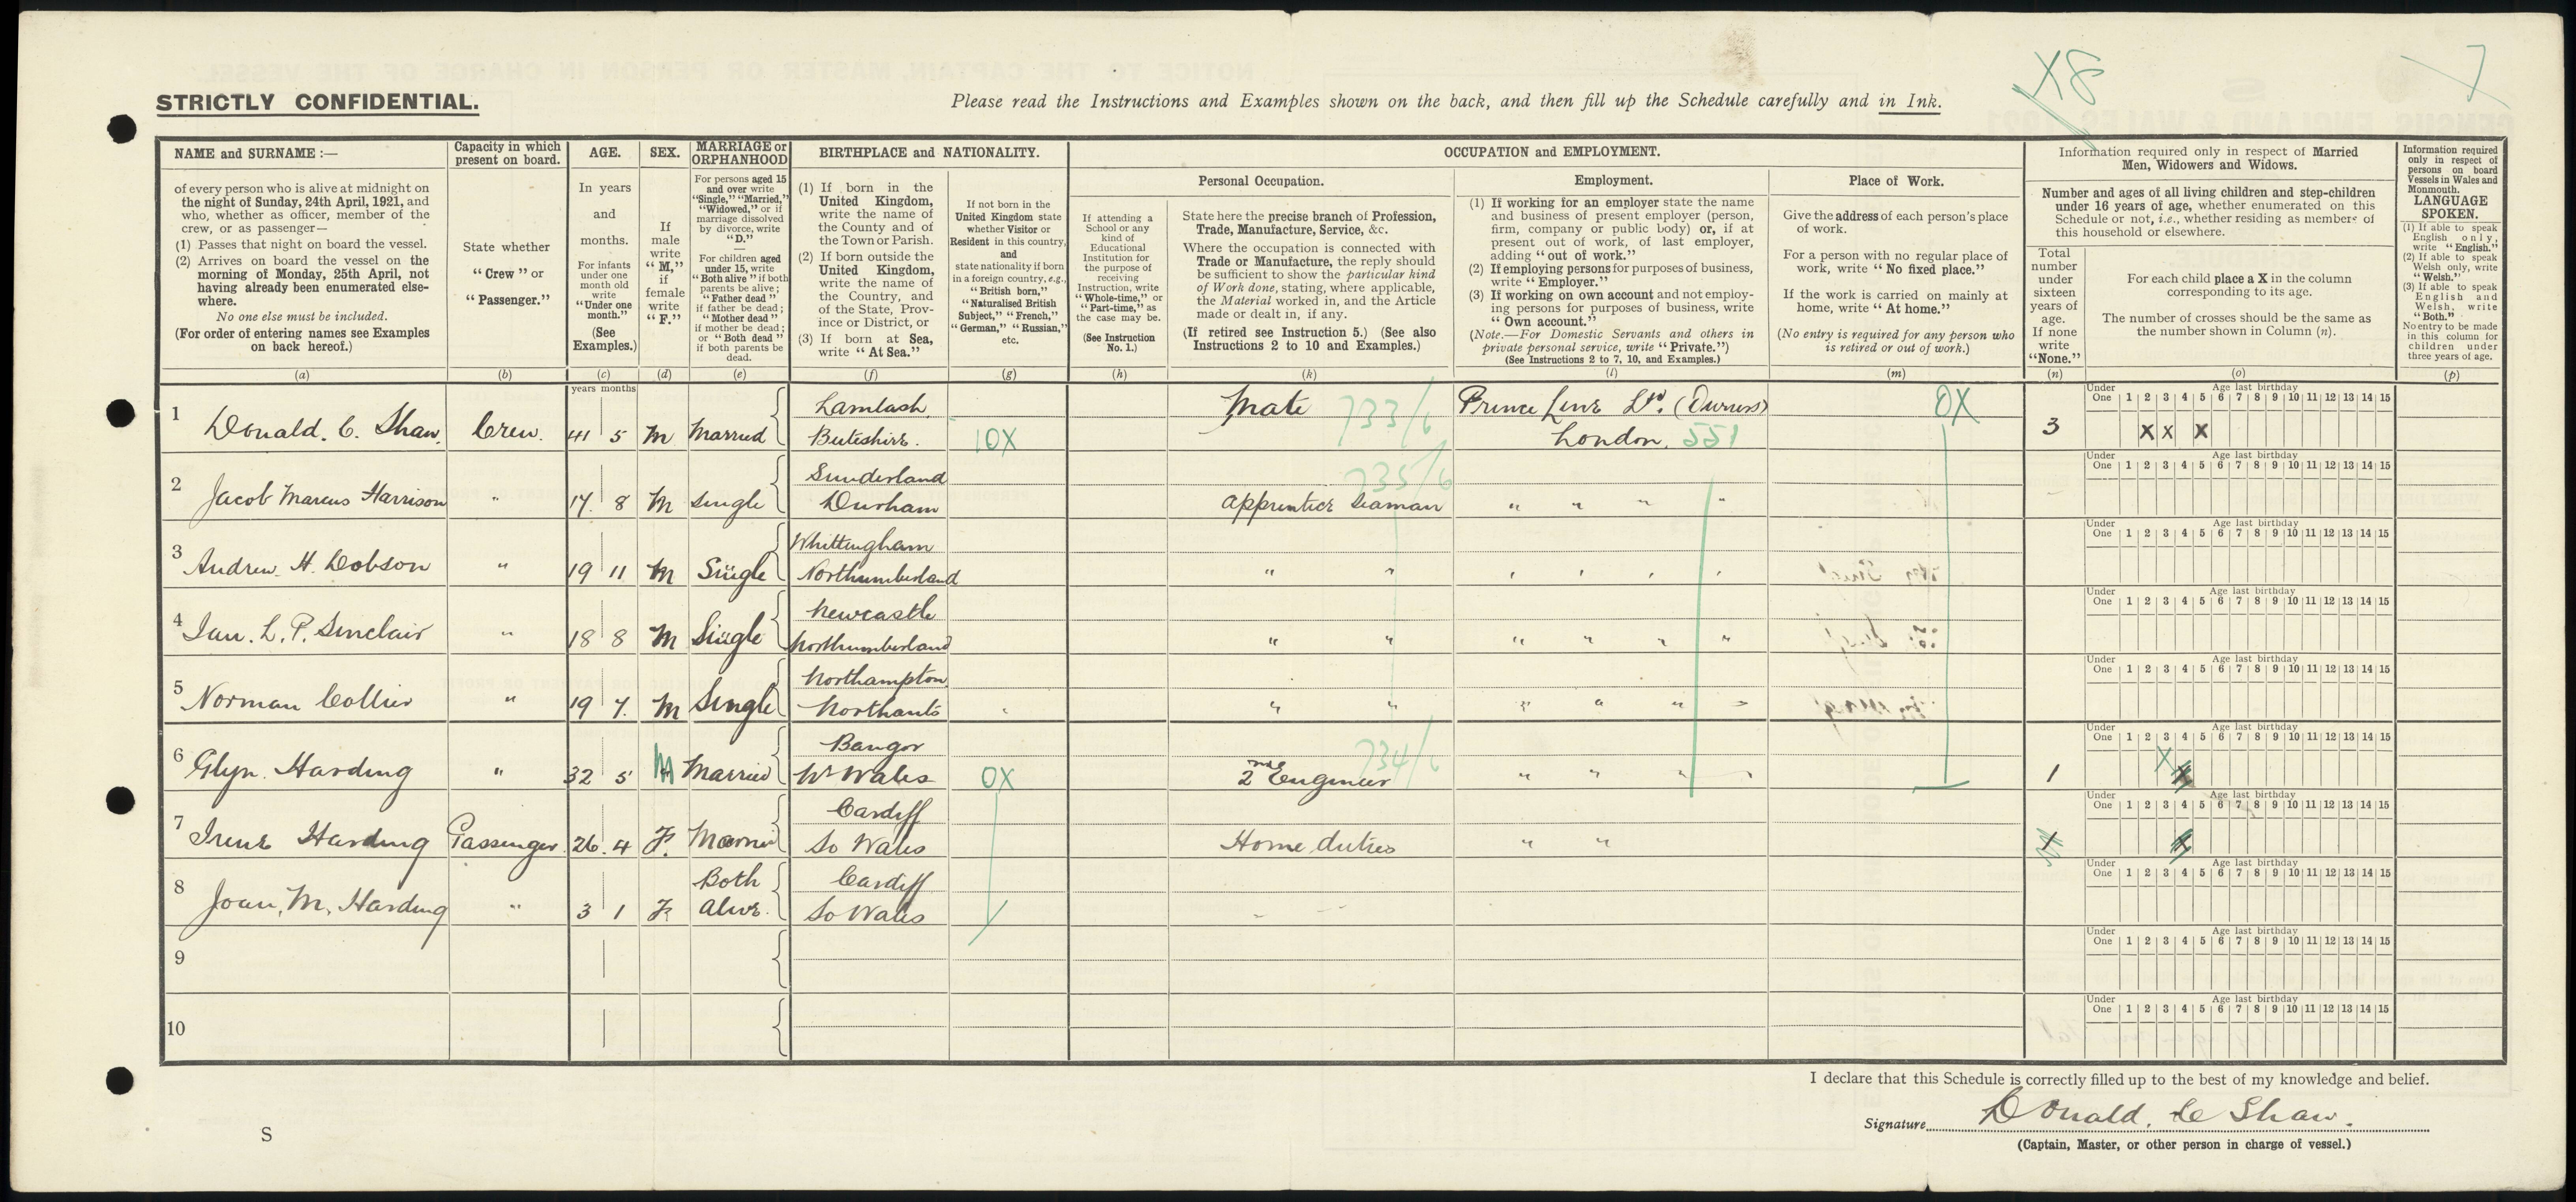 X8
7
STRICTLY CONFIDENTIAL.
Please read the Instructions and Examples shown on the back, and then fill up the Schedule carefully and in Ink.
NAME and SURNAME :—
of every person who is alive at midnight on
the night of Sunday, 24th April, 1921, and
who, whether as officer, member of the
crew, or as passenger—
(1) Passes that night on board the vessel.
(2) Arrives on board the vessel on the
morning of Monday, 25th April, not
having already been enumerated else-
where.
No one else must be included.
(For order of entering names see Examples
on back hereof.)
(a)
Capacity in which
present on board.
State whether
“ Crew ” or
“ Passenger.”
(b)
AGE.
In years
and
months.
For infants
under one
month old
write
“Under one
month.”
(See
Examples.)
(c)
SEX.
If
male
write
“ M,”
if
female
write
“ F.”
(d)
MARRIAGE or
ORPHANHOOD
For persons aged 15
and over write
“Single,” “Married,”
“Widowed,” or if
marriage dissolved
by divorce, write
“D.”
For children aged
under 15, write
“Both alive” if both
parents be alive;
“Father dead”
if father be dead;
“Mother dead”
if mother be dead;
or “Both dead”
if both parents be
dead.
(e)
BIRTHPLACE and NATIONALITY.
(1) If born in the
United Kingdom,
write the name of
the County and of
the Town or Parish.
(2) If born outside the
United Kingdom,
write the name of
the Country, and
of the State, Prov-
ince or District, or
(3) If born at Sea,
write “ At Sea.”
(f)
If not born in the
United Kingdom state
whether Visitor or
Resident in this country,
and
state nationality if born
in a foreign country, e.g.,
“British born,”
“Naturalised British
Subject,” “French,”
“German,” “Russian,”
etc.
(g)
OCCUPATION and EMPLOYMENT.
Personal Occupation.
If attending a
School or any
kind of
Educational
Institution for
the purpose of
receiving
Instruction, write
“Whole-time,” or
“Part-time,” as
the case may be.
(See Instruction
No. 1.)
(h)
State here the precise branch of Profession,
Trade, Manufacture, Service, &c.
Where the occupation is connected with
Trade or Manufacture, the reply should
be sufficient to show the particular kind
of Work done, stating, where applicable,
the Material worked in, and the Article
made or dealt in, if any.
(If retired see Instruction 5.) (See also
Instructions 2 to 10 and Examples.)
(k)
Employment.
(1) If working for an employer state the name
and business of present employer (person,
firm, company or public body) or, if at
present out of work, of last employer,
adding “out of work.”
(2) If employing persons for purposes of business,
write “ Employer.”
(3) If working on own account and not employ-
ing persons for purposes of business, write
“ Own account.”
(Note.—For Domestic Servants and others in
private personal service, write “ Private.”)
(See Instructions 2 to 7, 10, and Examples.)
(l)
Place of Work.
Give the address of each person's place
of work.
For a person with no regular place of
work, write “ No fixed place.”
If the work is carried on mainly at
home, write “ At home.”
(No entry is required for any person who
is retired or out of work.)
(m)
Information required only in respect of Married
Men, Widowers and Widows.
Number and ages of all living children and step-children
under 16 years of age, whether enumerated on this
Schedule or not, i.e., whether residing as members of
this household or elsewhere.
Total
number
under
sixteen
years of
age.
If none
write
“None.”
(n)
For each child place a X in the column
corresponding to its age.
The number of crosses should be the same as
the number shown in Column (n).
(o)
Information required
only in respect of
persons on board
Vessels in Wales and
Monmouth.
LANGUAGE
SPOKEN.
(1) If able to speak
English only,
write “English.”
(2) If able to speak
Welsh only, write
“Welsh.”
(3) If able to speak
English and
Welsh, write
“Both.”
No entry to be made
in this column for
children under
three years of age.
(p)
years months
Under One Age last birthday 1 2 3 4 5 6 7 8 9 10 11 12 13 14 15
1 Donald. C. Shaw. Crew. 41 5 M Married Lamlash Buteshire. 10X Mate 733/6 Prince Line Ltd. (Owners) London. 551 0X 3 X X X
Under One Age last birthday 1 2 3 4 5 6 7 8 9 10 11 12 13 14 15
2 Jacob Marcus Harrison " 17. 8 M Single Sunderland Durham 735/6 Apprentice Seaman " " " "
Under One Age last birthday 1 2 3 4 5 6 7 8 9 10 11 12 13 14 15
3 Andrew. H. Dobson " 19 11 M Single Whittingham Northumberland " " " " " "
Under One Age last birthday 1 2 3 4 5 6 7 8 9 10 11 12 13 14 15
4 Ian. L. P. Sinclair " 18 8 M Single Newcastle Northumberland " " " " " "
Under One Age last birthday 1 2 3 4 5 6 7 8 9 10 11 12 13 14 15
5 Norman Collier " 19 7. M Single Northampton Northants " " " " " "
Under One Age last birthday 1 2 3 4 5 6 7 8 9 10 11 12 13 14 15
6 Glyn. Harding " 32 5 M Married Bangor Nr Wales 0X 734/6 2nd Engineer " " " " 1 X
Under One Age last birthday 1 2 3 4 5 6 7 8 9 10 11 12 13 14 15
7 Irene Harding Passenger 26. 4 F. Married Cardiff So Wales Home duties " " 1
Under One Age last birthday 1 2 3 4 5 6 7 8 9 10 11 12 13 14 15
8 Joan. M. Harding " 3 1 F. Both Alive. Cardiff So Wales
Under One Age last birthday 1 2 3 4 5 6 7 8 9 10 11 12 13 14 15
9
Under One Age last birthday 1 2 3 4 5 6 7 8 9 10 11 12 13 14 15
10
I declare that this Schedule is correctly filled up to the best of my knowledge and belief.
Signature Donald. C Shaw.
(Captain, Master, or other person in charge of vessel.)
S